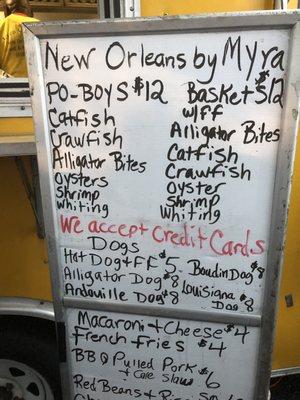 New Orleans by Myra
PO-BOYS $12
Catfish
Crawfish
Alligator Bites
Oysters
Shrimp
Whiting
Basket $12
w/FF
Alligator Bites
Catfish
Crawfish
Oyster
Shrimp
Whiting
We accept Credit Cards
Dogs
Hot Dog+FF $5
Alligator Dog $8
Andouille Dog $8
Boudin Dog $8
Louisiana Dog $8
Macaroni + Cheese $4
French Fries $4
BBQ Pulled Pork
+ Cole Slaw $6
Red Beans +